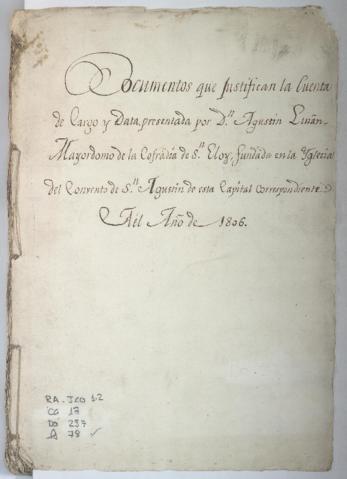 Documentos que Justifican la Cuenta
de Cargo y Data, presentada por D.n Agustin
Mayordomo de la Cofradia de S.n Eloy, fundada en la Yglesia
del Convento de S.n Agustin de esta Capital correspondiente
Ael Año de 1806.
RA. JCO 1.2
CA 17
DO 237
78